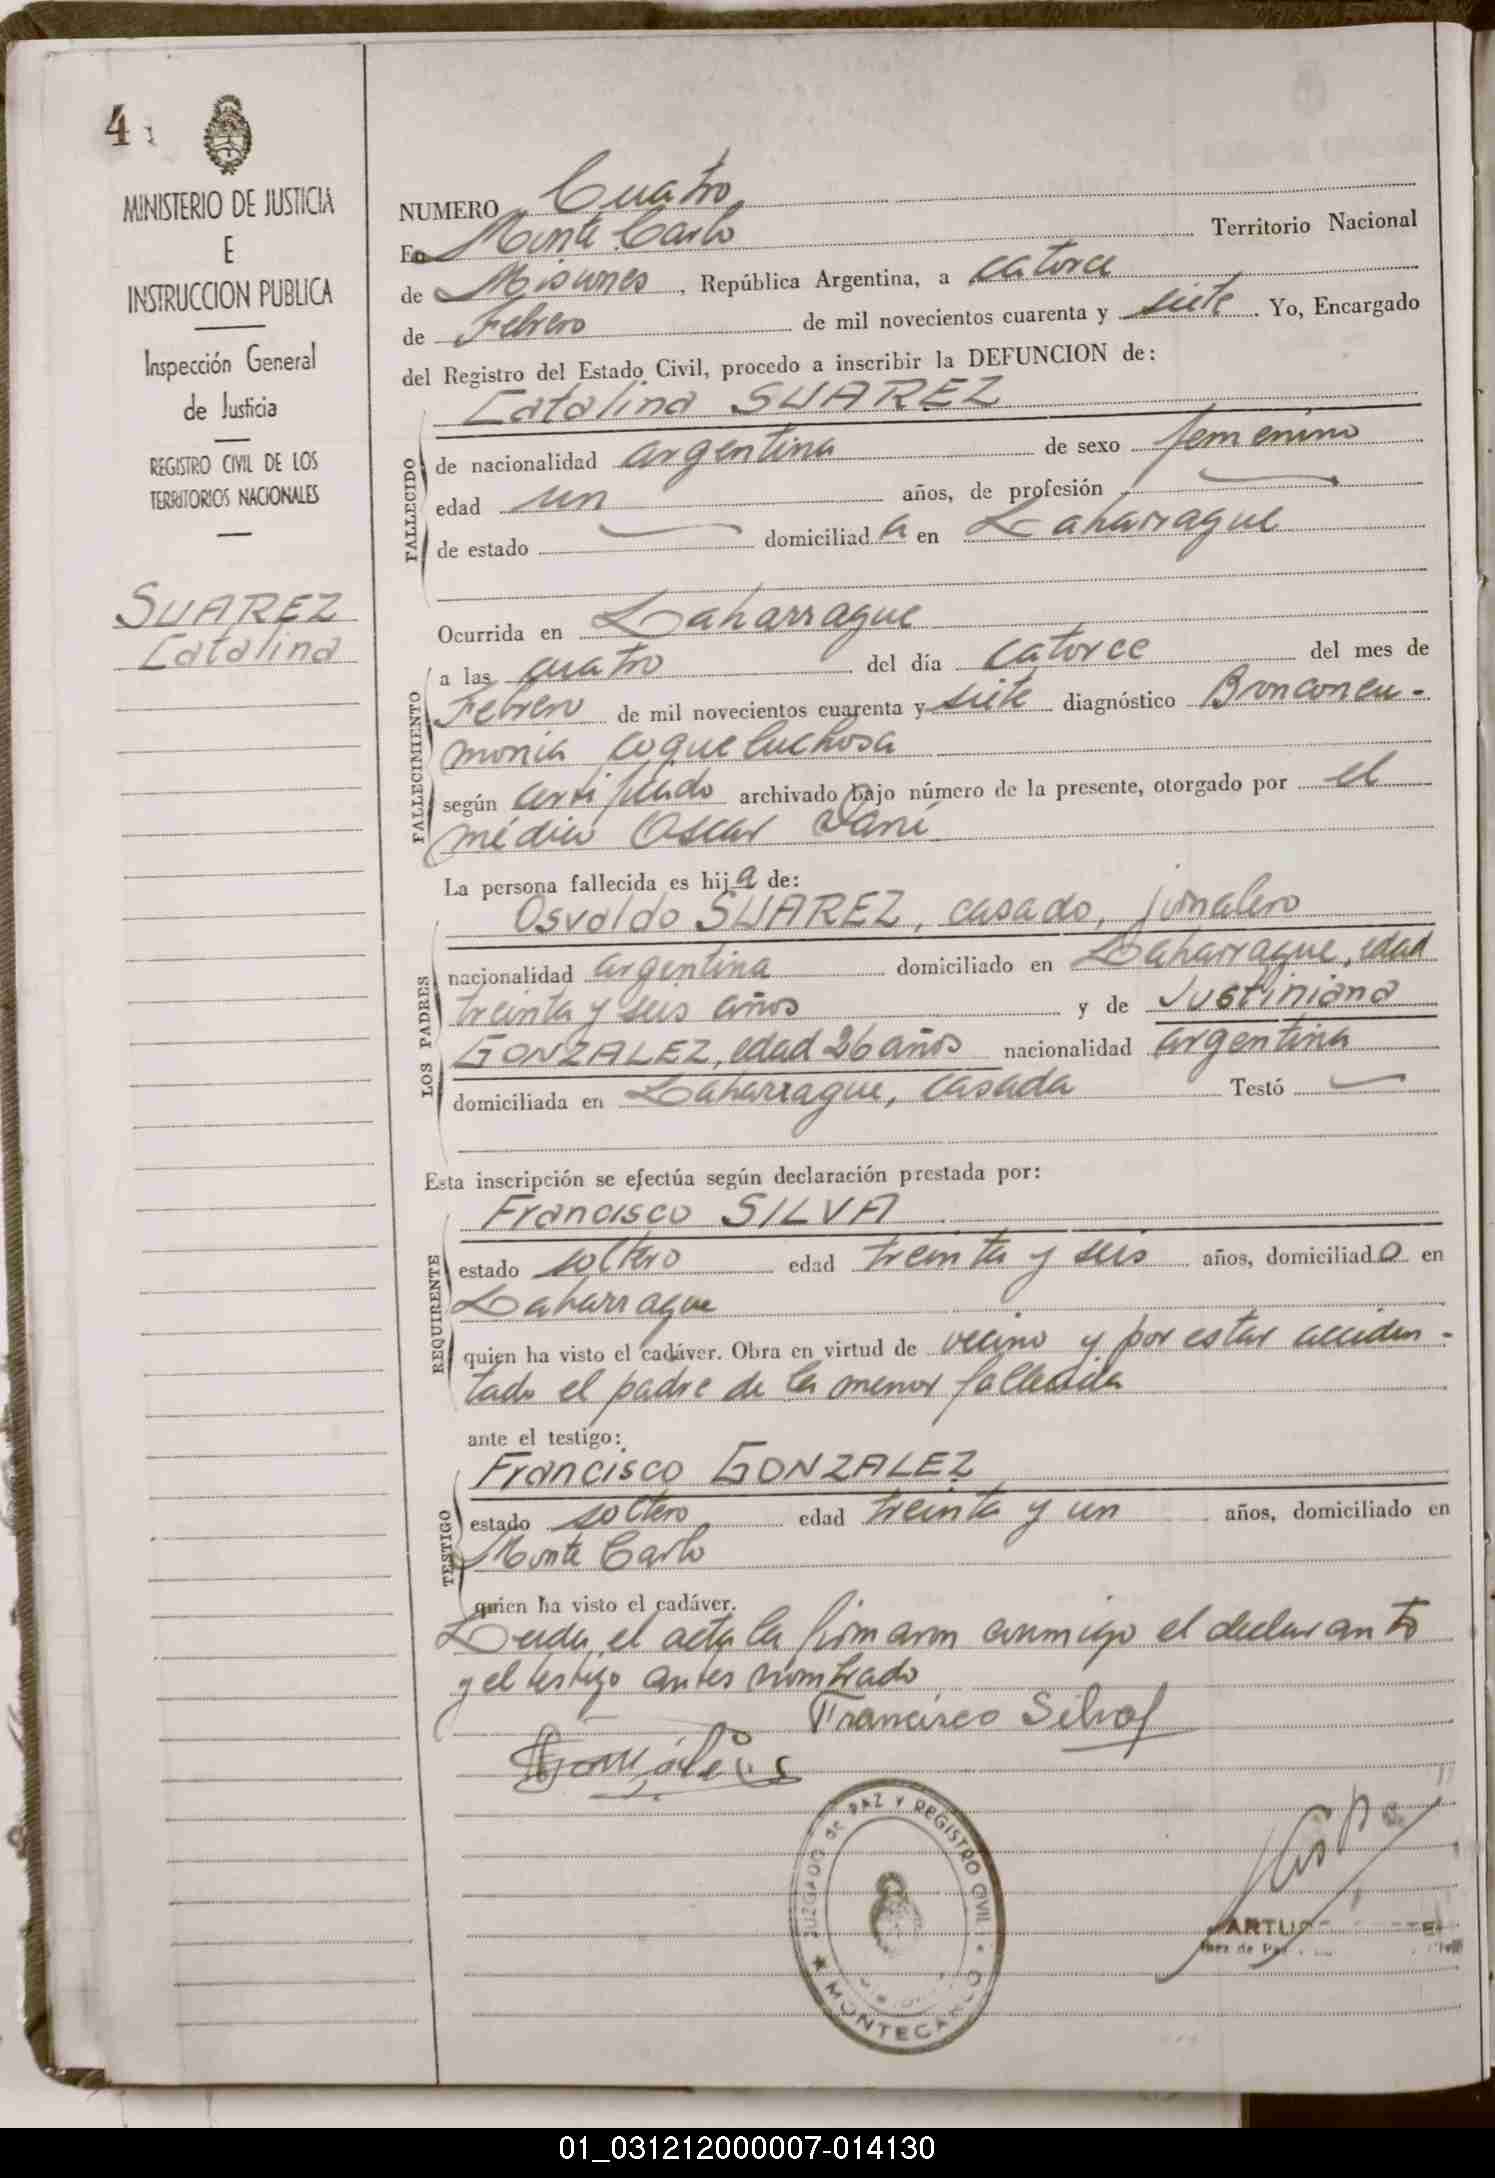 4
MINISTERIO DE JUSTICIA
E
INSTRUCCION PUBLICA
Inspección General
de Justicia
REGISTRO CIVIL DE LOS
TERRITORIOS NACIONALES
SUAREZ
Catalina
NUMERO Cuatro
En Monte Carlo Territorio Nacional
de Misiones, República Argentina, a catorce
de Febrero de mil novecientos cuarenta y siete. Yo, Encargado
del Registro del Estado Civil, procedo a inscribir la DEFUNCION de:
Catalina SUAREZ
FALLECIDO
de nacionalidad argentina de sexo femenino
edad un años, de profesión
de estado domiciliada en Laharrague
Ocurrida en Laharrague
FALLECIMIENTO
a las cuatro del día catorce del mes de
Febrero de mil novecientos cuarenta y siete diagnóstico Bronconeu-
monia coqueluchosa
según certificado archivado bajo número de la presente, otorgado por el
médico Oscar
La persona fallecida es hija de:
LOS PADRES
Osvaldo SUAREZ, casado, jornalero
nacionalidad argentina domiciliado en Laharrague, edad
treinta y seis años y de Justiniana
GONZALEZ, edad 26 años nacionalidad argentina
domiciliada en Laharrague, casada Testó
Esta inscripción se efectúa según declaración prestada por:
REQUIRENTE
Francisco SILVA
estado soltero edad treinta y seis años, domiciliado en
Laharrague
quien ha visto el cadáver. Obra en virtud de vecino y por estar acciden-
tado el padre de la menor fallecida
ante el testigo:
TESTIGO
Francisco GONZALEZ
estado soltero edad treinta y un años, domiciliado en
Monte Carlo
quien ha visto el cadáver.
Leida el acta la firmaron conmigo el declarante
y el testigo antes nombrado
Francisco Silva
JUZGADO de PAZ Y REGISTRO CIVIL
MONTECARLO
01_031212000007-014130